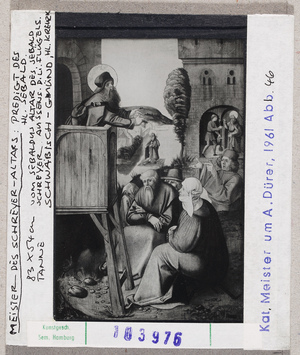 MEISTER DES SCHREYER-ALTARS: PREDIGT DES
HL. SEBALD.
83 X 54 cm VOM SEBALDUS ALTAR DES SEBALD
TANNE SCHREYER. AUSSENS. D. LI. FLÜGELS.
SCHWÄBISCH-GMÜND, HL. KREUZK
Kat. Meister um A. Dürer, 1961 Abb. 46
Kunstgesch.
Sem. Hamburg
103976